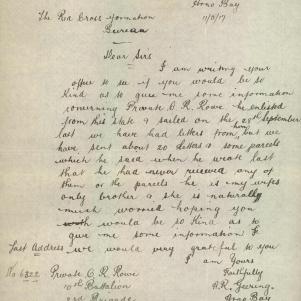 Arno Bay
The Red Cross formation 11/3/17
Bureau
Dear Sirs
I am writing your
office to see if you would be so
kind as to give me some information
concerning Private C. R. Rowe he enlisted
from this state & sailed on the 28th September
last we have had letters from him but we
have sent about 20 letters & some parcels
which he said when he wrote last
that he had never received any of
them or the parcels he is my wifes
only brother & she is naturally
much worried hoping you
would be so kind as to
give me some information I
Last Address we would very grateful to you
I am Yours
No 6322 Private C. R. Rowe Faithfully
10th Battalion A.R. Geering.
3rd Brigade Arno Bay